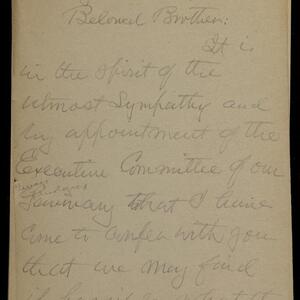 Beloved Brother:
It is
in the spirit of the
utmost sympathy and
by appointment of the
Executive Committee of our
Seminary that I have
come to confer with you
that we may find